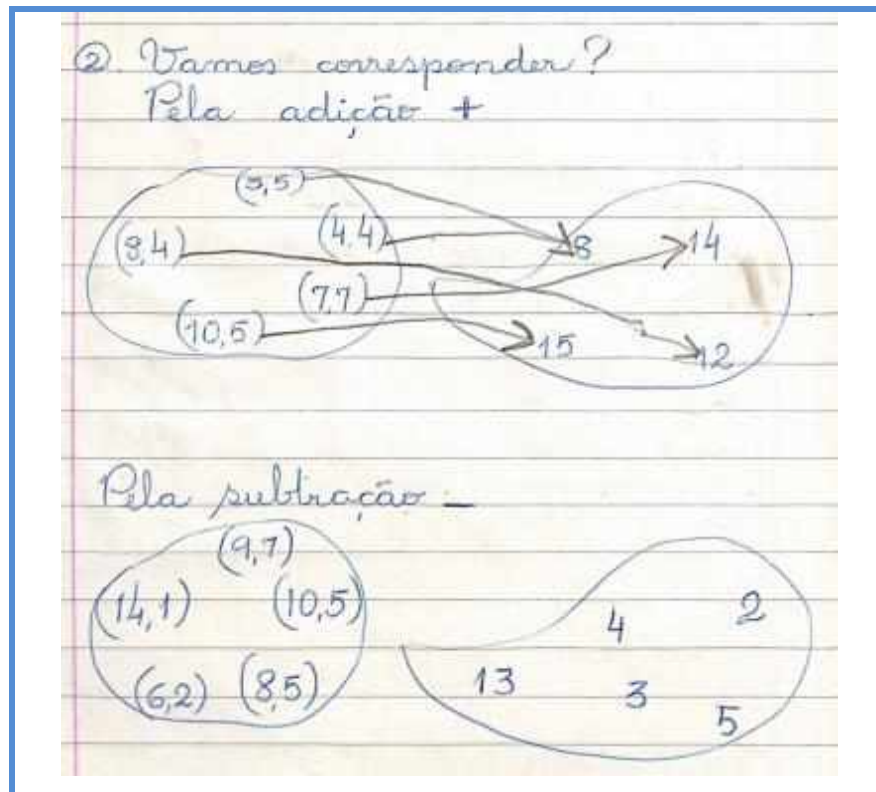 2. Vamos corresponder?
Pela adição +
(3,5)
(8,4) (4,4) 8 14
(7,7)
(10,5) 15 12
Pela subtração -
(9,7)
(14,1) (10,5) 4 2
(6,2) (8,5) 13 3 5